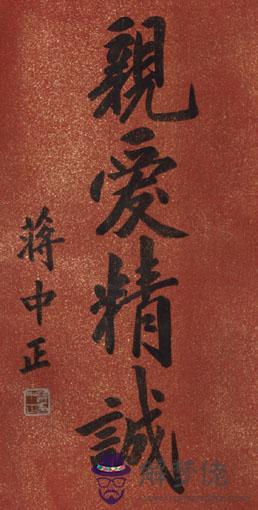 親愛精誠
蔣中正
解梦佬